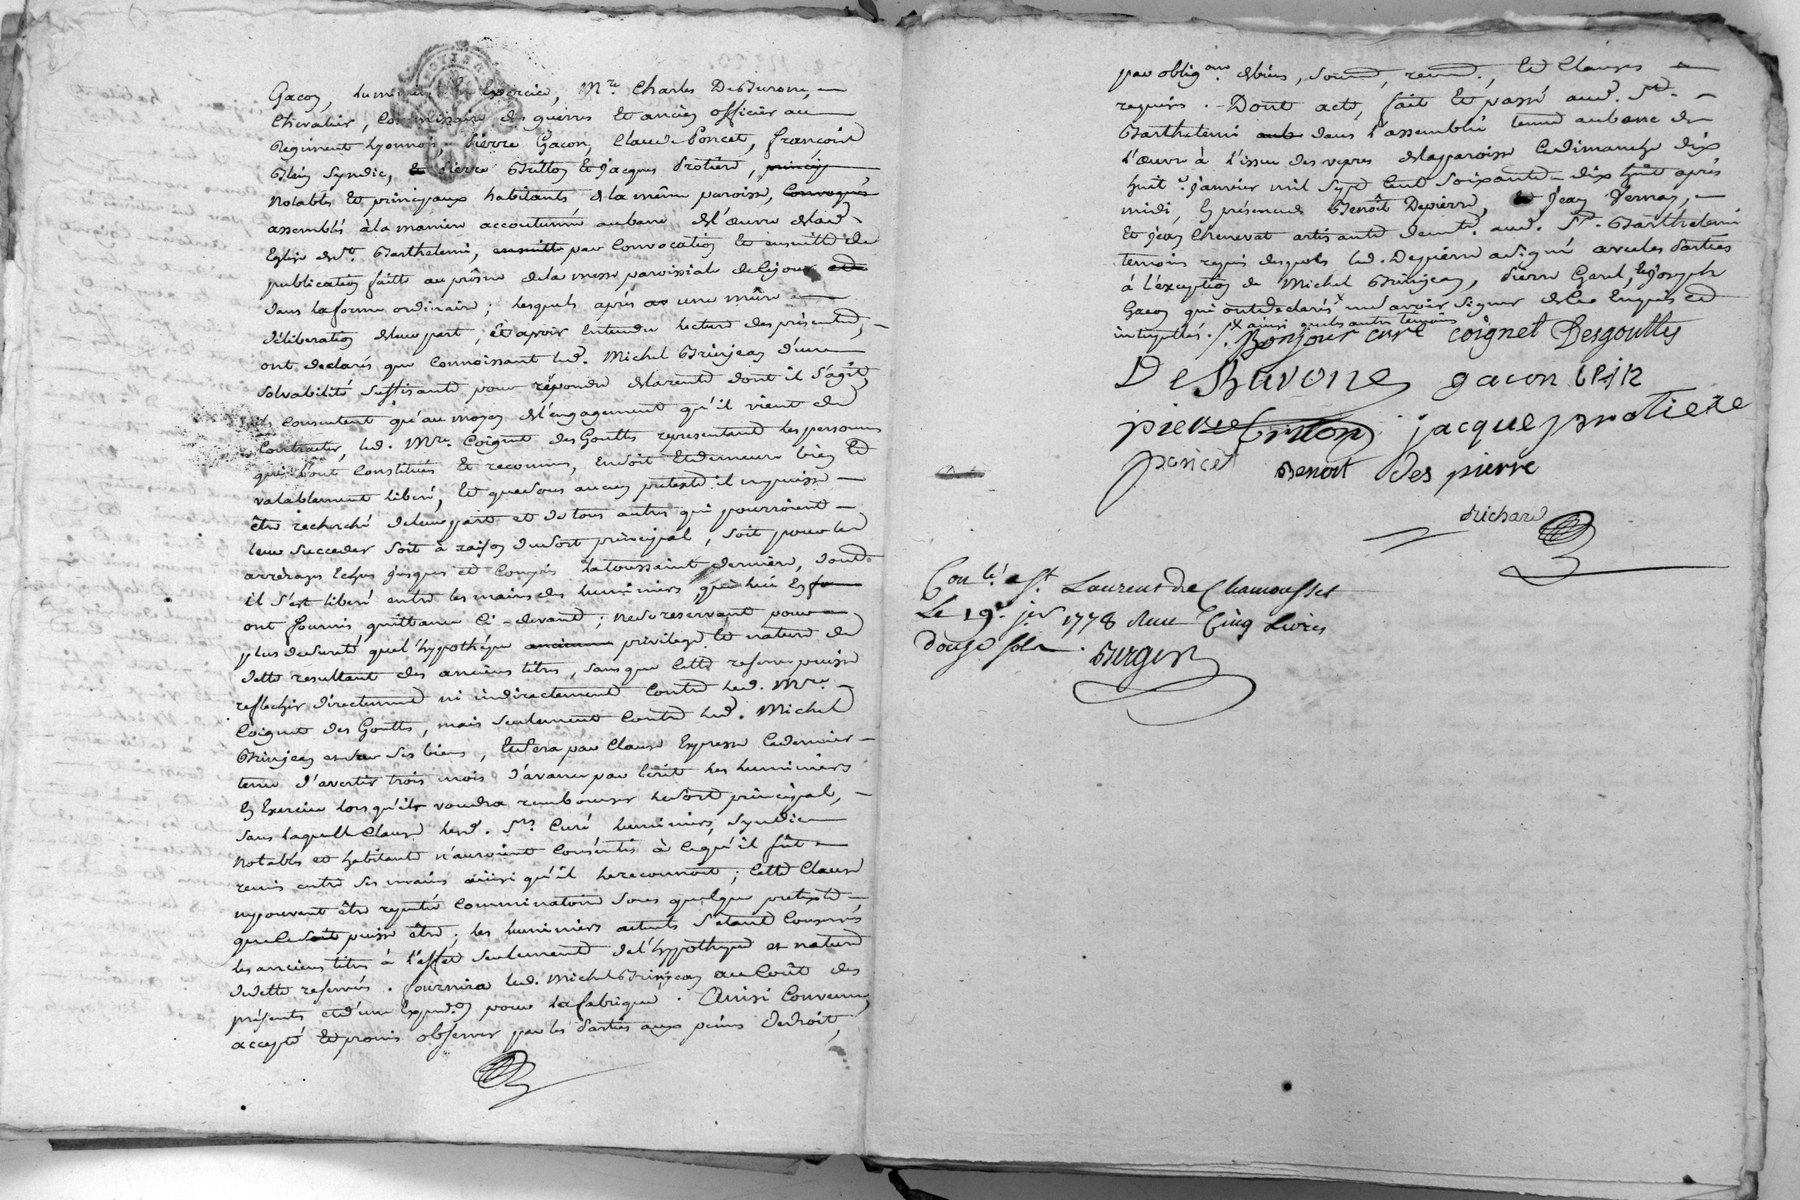 Gacon, lumi en Exercice, Mre. Charles DeBurone,
Chevalier, Commissaire des guerres et ancien officier au
Regiment Lyonnois, Pierre Gacon, Claude Poncet, françois
Blein Syndic, Pierre Brillon et Jacques Protiere,
notables et principaux habitants, de la même paroisse, convoqués
assemblés à la maniere accoutumée au banc de l'œuvre de lad.
Eglise de St. Barthelemi, ensuitte par Convocation et ensuitte de
publication faitte au prône de la messe paroissiale de ce jour
dans la forme ordinaire, lesquels après une mûre
déliberation de leur part, et avoir entendu lecture des présentes,
ont declarés que connoissant led. Michel Brinjean d'une
solvabilité suffisante pour répondre de la rente dont il s'agit,
ils consentent qu'au moyen de l'engagement qu'il vient de
contracter, led. Mre. Coignet des Gouttes representant les personnes
qui l'ont constituée et reconnue, en soit et demeure bien et
valablement liberé, et que sous aucun pretexte il ne puisse
être recherché de leur part et de tous autres qui pourroient
leur succeder soit à raison du sort principal, soit pour les
arrérages échus jusques et compris la toussaint derniere, dont
il s'est liberé entre les mains des luminiers, qui lui en
ont fourni quittance ci-devant; ne se reservant pour
plus de sureté que l'hypothéque privilege et nature de
dette resultant des anciens titres, sans que cette reserve puisse
reflechir directement ni indirectement contre led. Mre.
Coignet des Gouttes, mais seulement contre led. Michel
Brinjean et sur ses biens, et sera par clause expresse ce dernier
tenu d'avertir trois mois d'avance par écrit les luminiers
en Exercice lorsqu'il voudra rembourser le sort principal,
sans laquelle clause lesd. Srs. Curé, luminiers, Syndic
notables et habitants n'auroient consentis à ce qu'il fût
remis entre ses mains ainsi qu'il le reconnoit; cette clause
ne pouvant être reputée comminatoire sous quelque pretexte
que ce soit puisse être; les luminiers actuels s'étant conservés
les anciens titres à l'effet seulement de l'hypotheque et nature
de dette reservés. fournira led. Michel Brinjean au coût des
présentes et d'une Expedon. pour la fabrique. Ainsi convenu,
accepté et promis observer par les Parties aux peines de droit,
par obligaon. de biens, soumd., renond., et clauses
requises. Dont acte, fait et passé aud. St.
Barthelemi dans l'assemblée tenue au banc de
l'œuvre à l'issue des vepres de la paroisse ce dimanche dix
huit Janvier mil sept cent soixante-dix huit après
midi, En présence de Benoît Depierre, Jean Vernay,
et Jean Chenevat artisants demt. aud. St. Barthelemi
temoins requis desquels led. Depierre a signé avec les Parties
à l'exception de Michel Brinjean, Pierre Garel, et Joseph
Gacon qui ont declarés ne savoir signer de ce Enquis et
interpellés. x ainsi que les autres temoins
Bonjour curé Coignet Desgouttes
DeBurone gacon blein
pierre brillon jacque protiere
poncet Benoit des pierre
Richard
Conlé. a St. Laurent de Chamousset
Le 19e. jer 1778 Reçu Cinq Livres
douze sols.
Burgin